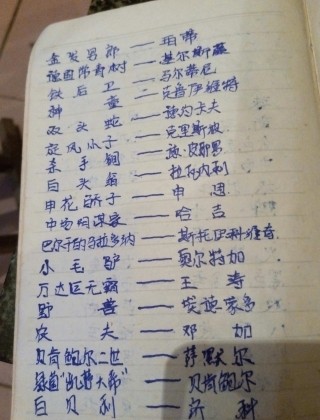 金发男郎——珀蒂
德国常青树——基尔斯滕
铁后卫——马尔蒂尼
神童——克鲁伊维特
双头蛇——
旋风小子——克里斯波
杀手锏——
白头翁——拉瓦内利
申花骄子——申思
中场阴谋家——哈吉
巴尔干的马拉多纳——斯托伊科维奇
小毛驴——奥尔特加
万达巨无霸——王涛
野兽——埃德蒙多
农夫——邓加
贝肯鲍尔二世——萨默尔
绿茵"凯撒大帝"——贝肯鲍尔
白贝利——济科